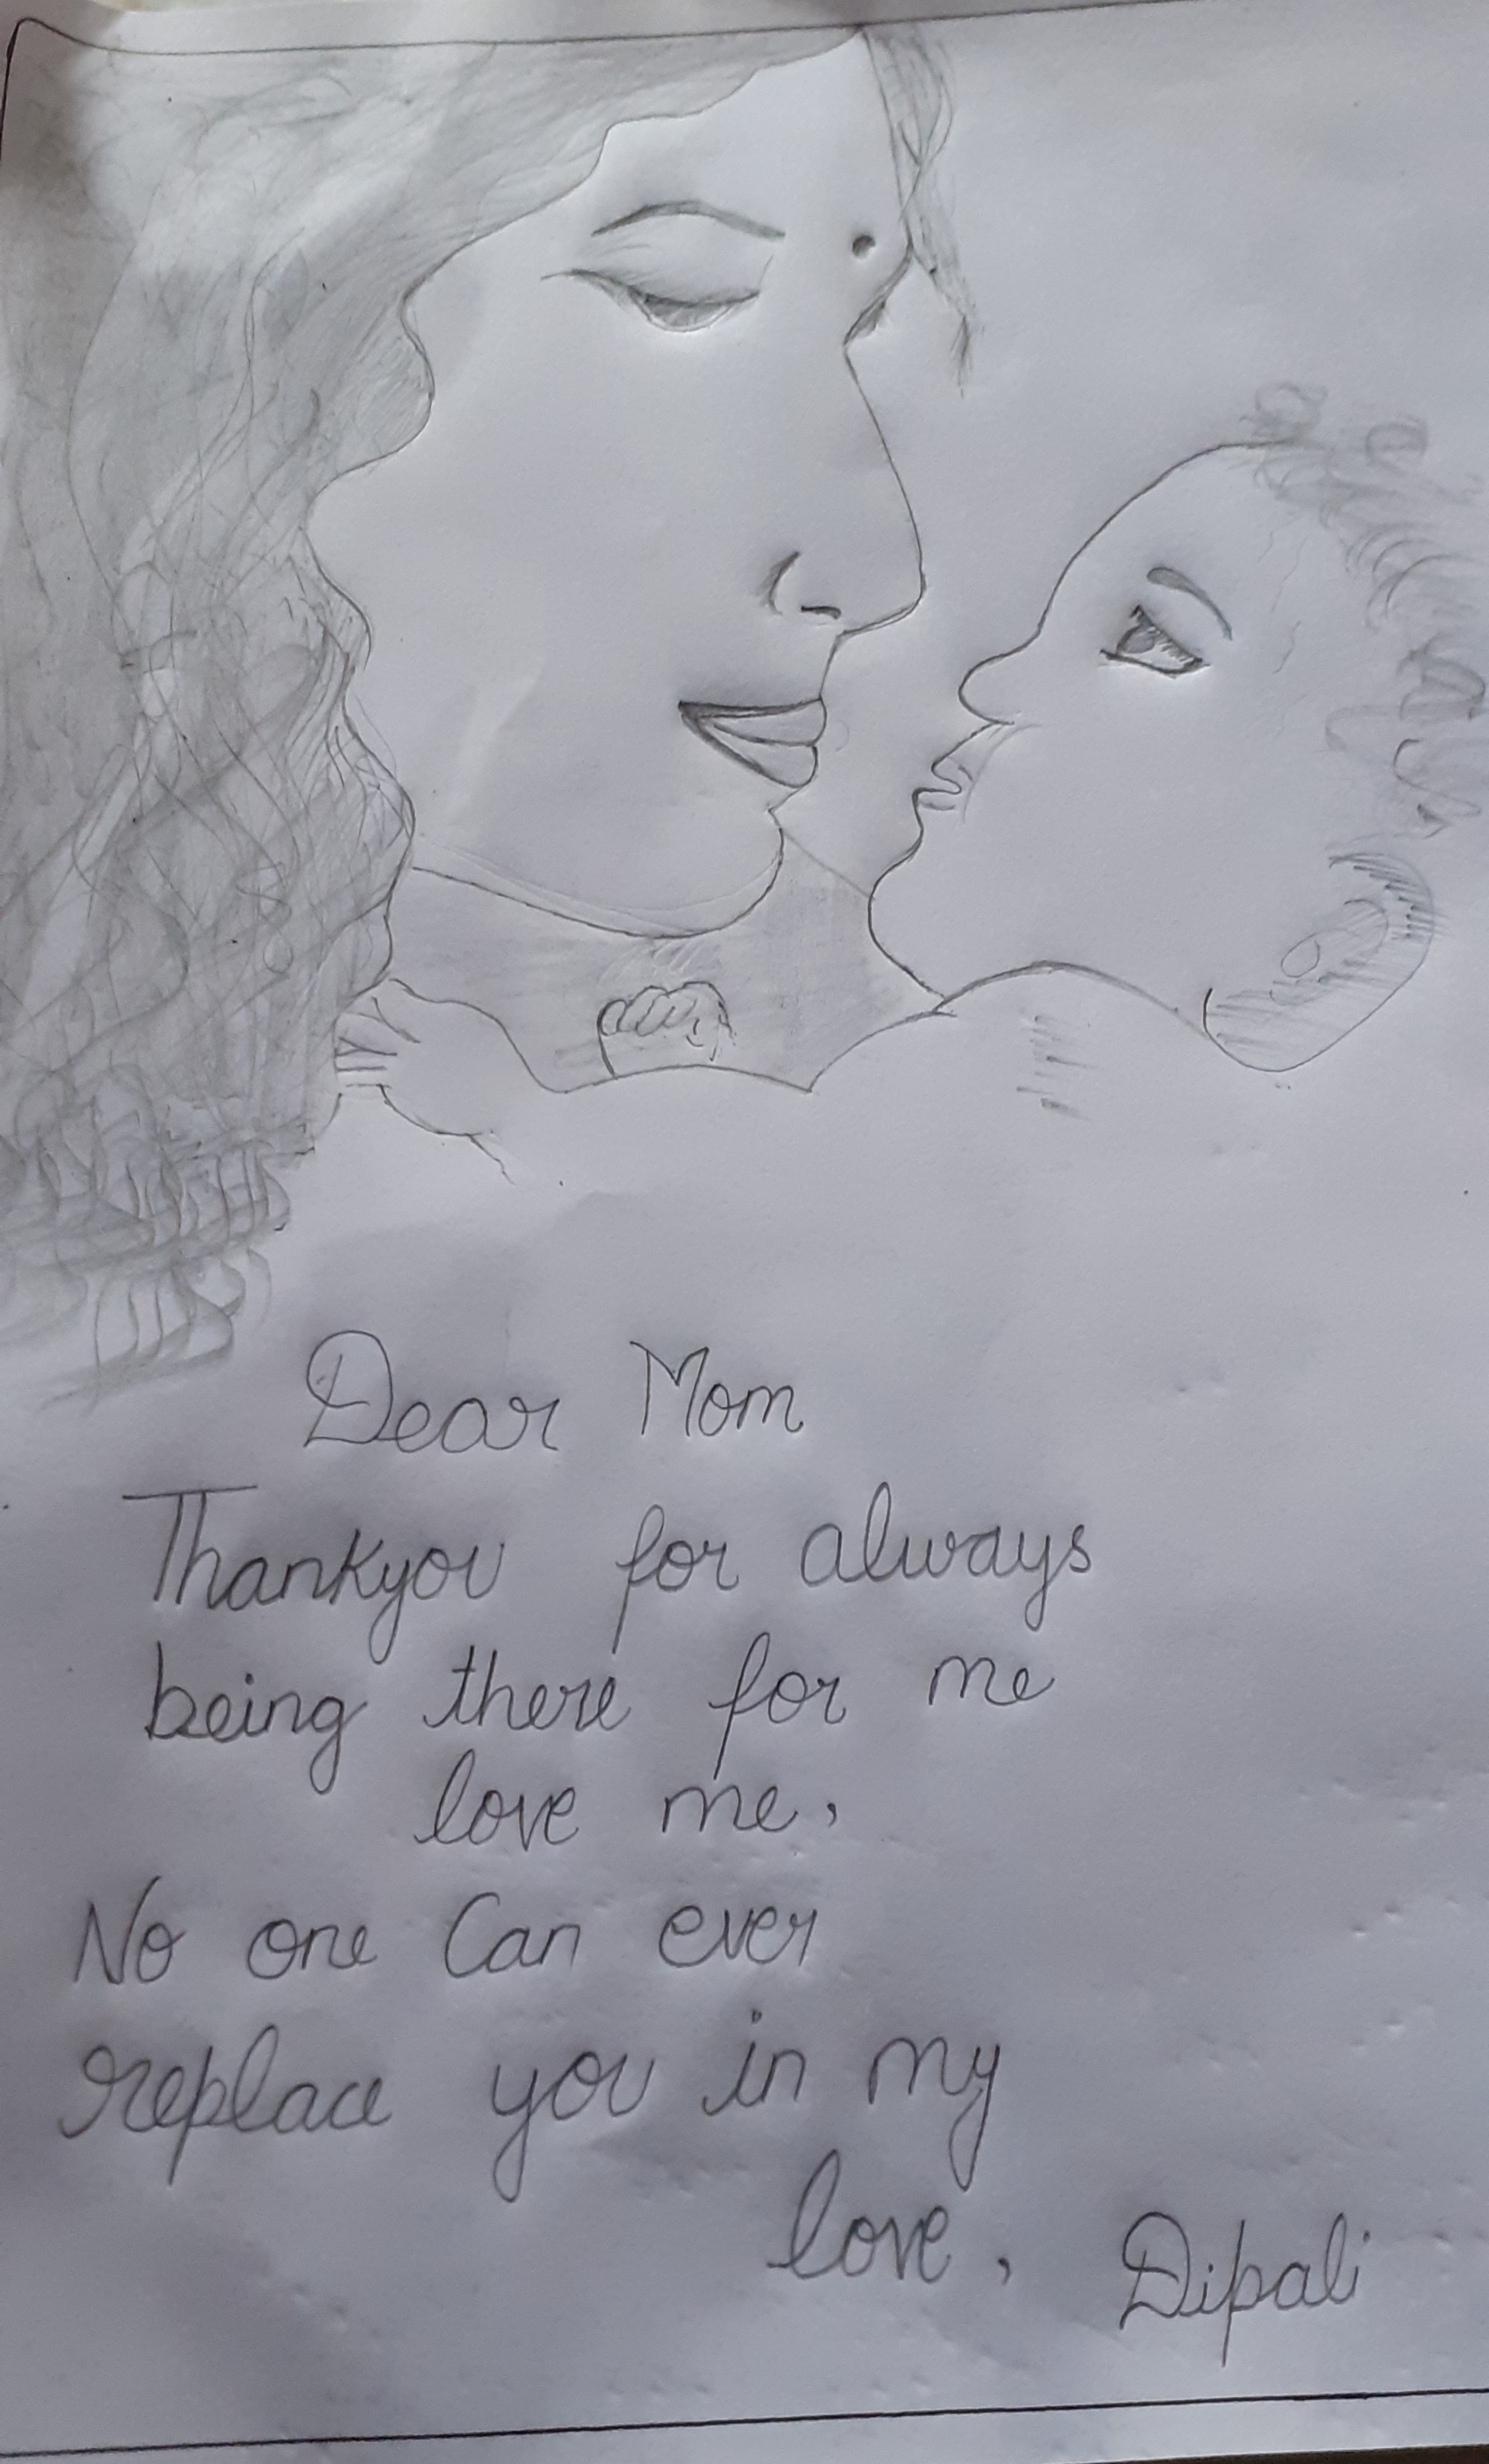 Dear Mom
Thankyou for always
being there for me
love me,
No one Can ever
replace you in my
love, Dipali